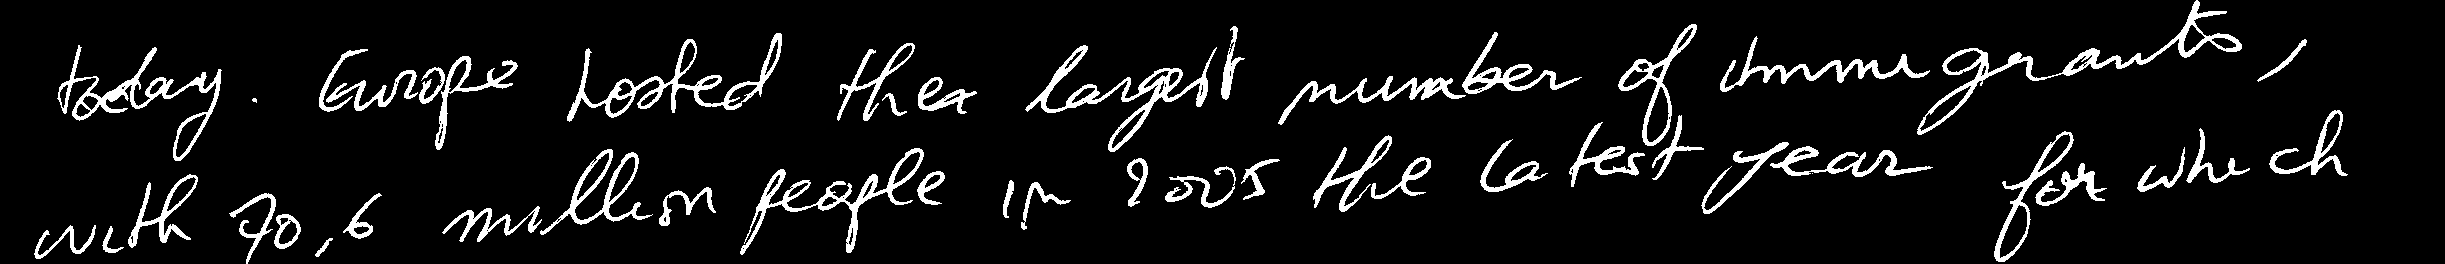 today. Europe hosted then largest number of immigrants,
with 70,6 million people in 2005 the latest year for which